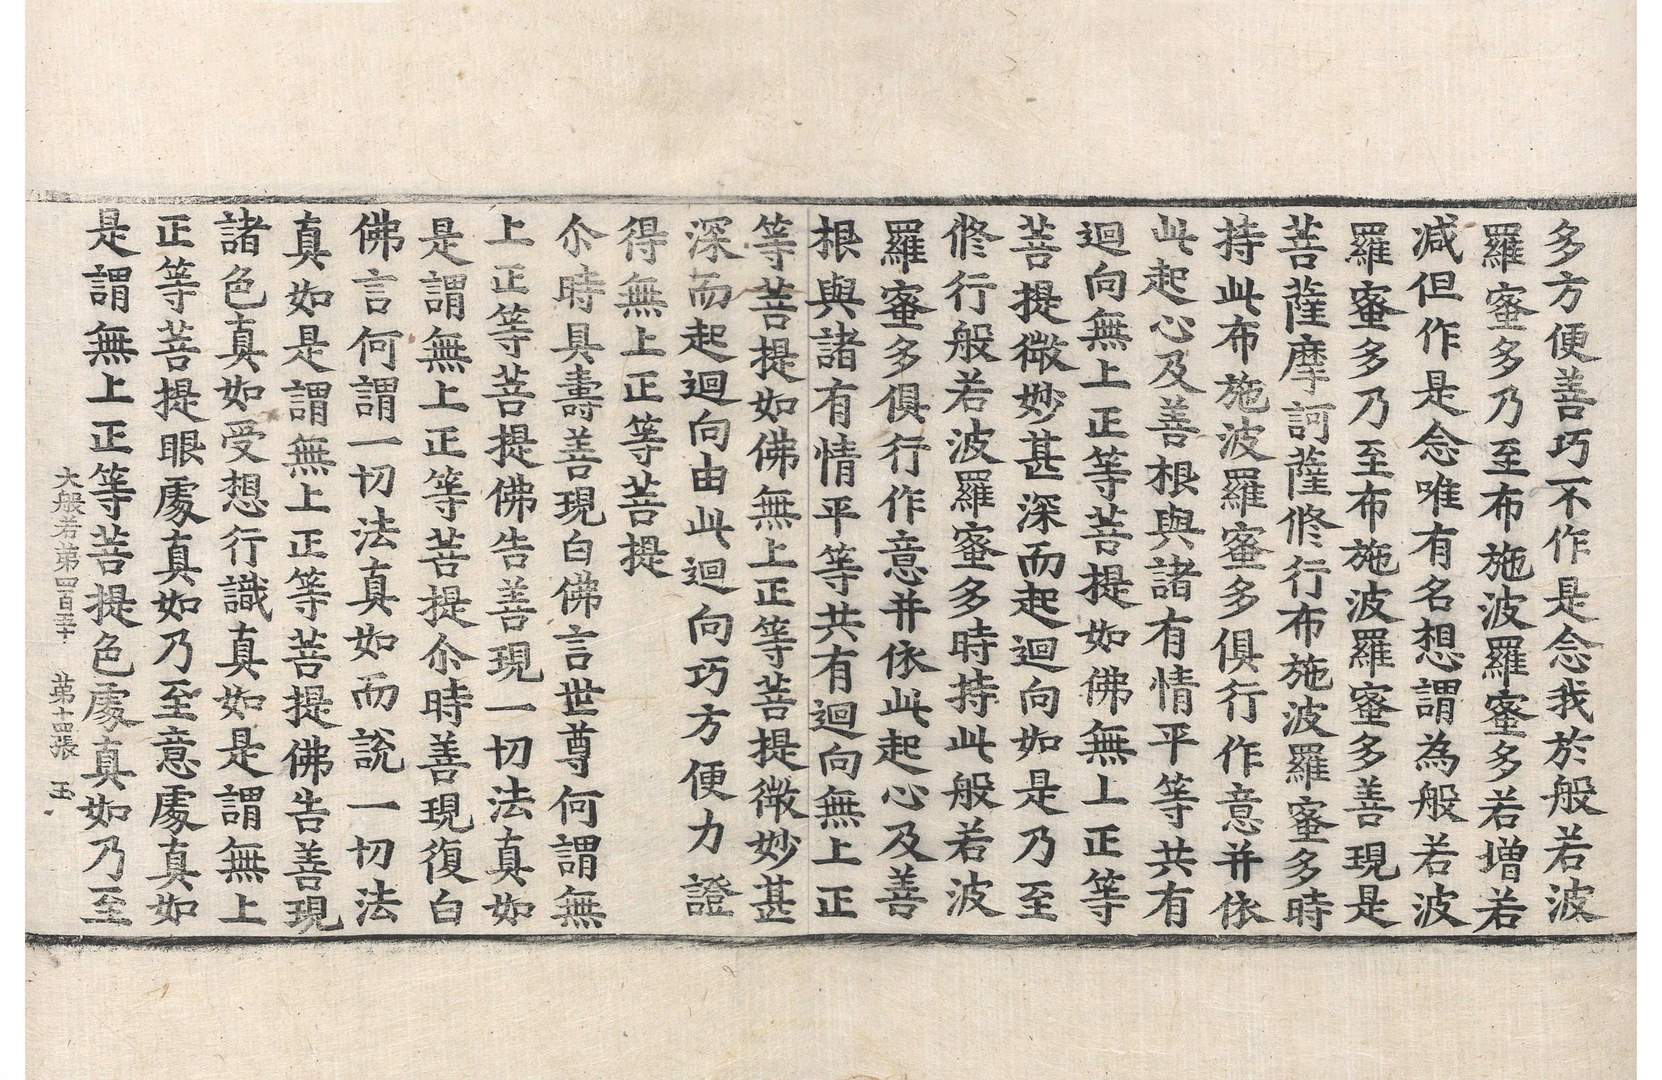 多方便善巧不作是念我於般若波
羅蜜多乃至布施波羅蜜多若增若
減但作是念唯有名想謂為般若波
羅蜜多乃至布施波羅蜜多善現是
菩薩摩訶薩修行布施波羅蜜多時
持此布施波羅蜜多俱行作意并依
此起心及善根與諸有情平等共有
迴向無上正等菩提如佛無上正等
菩提微妙甚深而起迴向如是乃至
修行般若波羅蜜多時持此般若波
羅蜜多俱行作意并依此起心及善
根與諸有情平等共有迴向無上正
等菩提如佛無上正等菩提微妙甚
深而起迴向由此迴向巧方便力證
得無上正等菩提
尒時具壽善現白佛言世尊何謂無
上正等菩提佛告善現一切法真如
是謂無上正等菩提尒時善現復白
佛言何謂一切法真如而說一切法
真如是謂無上正等菩提佛告善現
諸色真如受想行識真如是謂無上
正等菩提眼處真如乃至意處真如
是謂無上正等菩提色處真如乃至
大般若第四百五十 第十四張 玉